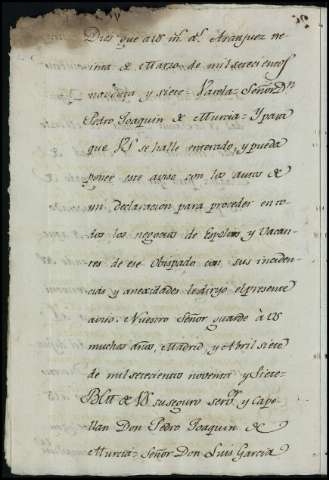 Dios que a VS m.s a.s Aranjuez tre
inta de Marzo de mil setecientos
noventa y siete = Varela = Señor D.n
Pedro Joaquin de Murcia = Y para
que VS se halle enterado, y pueda
poner este aviso con los autos de
mi declaracion para proceder en to
dos los negocios de Espolios y Vacan
tes de ese Obispado con sus inciden
cias y anexidades le dirijo el presente
aviso. Nuestro Señor guarde à VS
muchos años, Madrid y Abril siete
de mil setecientos noventa y siete =
BLM de VS su seguro serv.r y Cape
llan Don Pedro Joaquin de
Murcia = Señor Don Luis Garcia